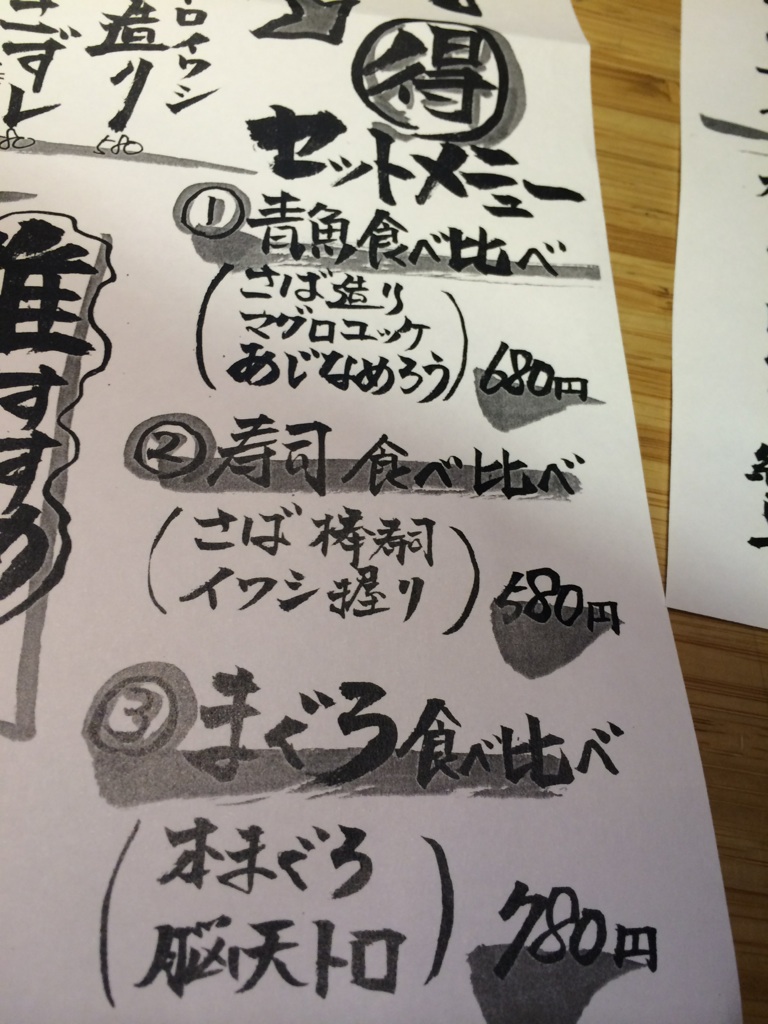 造り
580
得
セットメニュー
① 青魚食べ比べ
(さば造り
マグロユッケ
あじなめろう) 680円
② 寿司食べ比べ
(さば棒寿司
イワシ握り) 580円
③ まぐろ食べ比べ
(本まぐろ
脳天トロ) 780円
すすめ